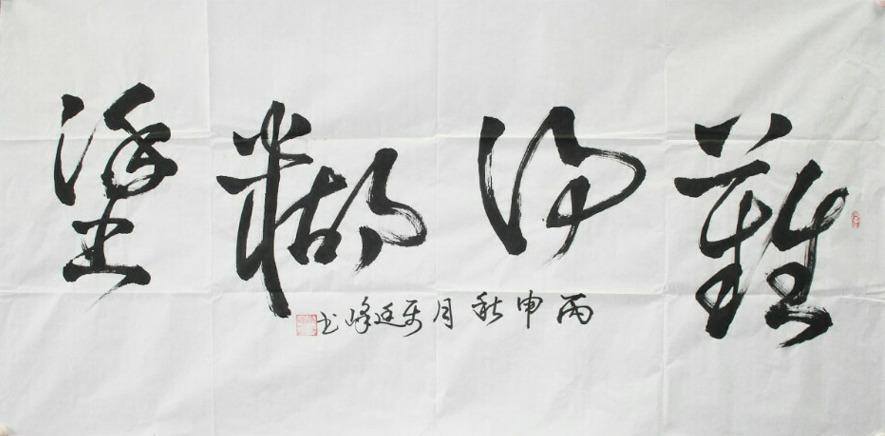 難得糊塗
丙申秋月廷峰书